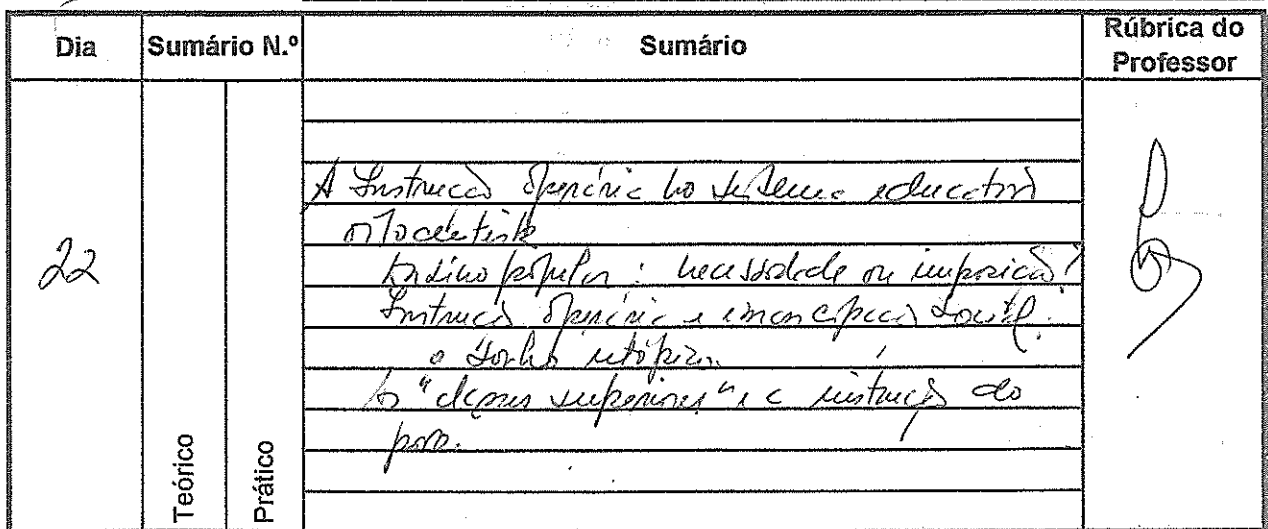 Dia Sumário N.º Sumário Rúbrica do Professor
A Instrução Operária no sistema educativo
oitocentista
Ensino popular: necessidade ou imposição?
Instrução Operária e emancipação social:
o sonho utópico.
As "classes superiores" e a instrução do
povo.
22
Teórico
Prático